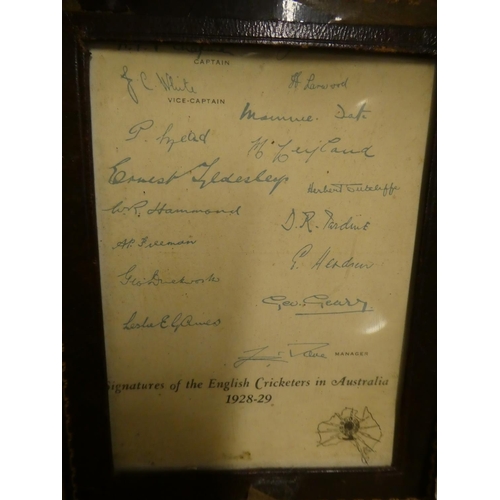 CAPTAIN
J. C. White H Larwood
VICE-CAPTAIN
Maurice Tate
P. Mead
M Leyland
Ernest Tyldesley
Herbert Sutcliffe
W. R. Hammond
D. R. Jardine
A P Freeman
E. Hendren
Geo Duckworth
Geo. Geary
Leslie E G Ames
MANAGER
Signatures of the English Cricketers in Australia
1928-29